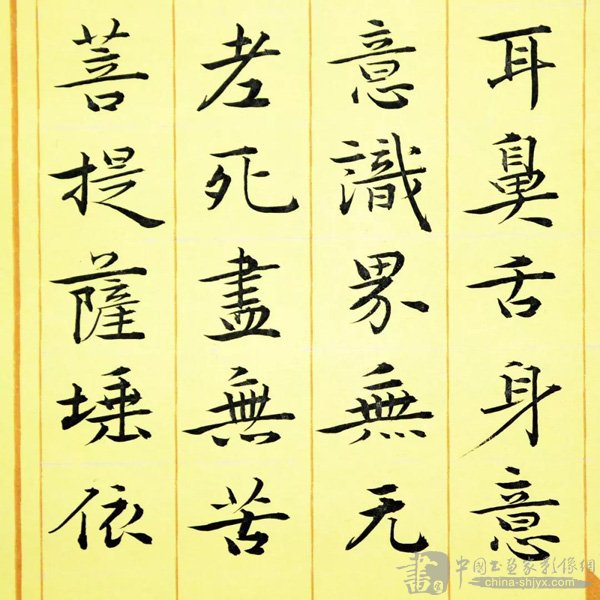 耳鼻舌身意
意識界無无
老死盡無苦
菩提薩埵依
china-shjyx.com